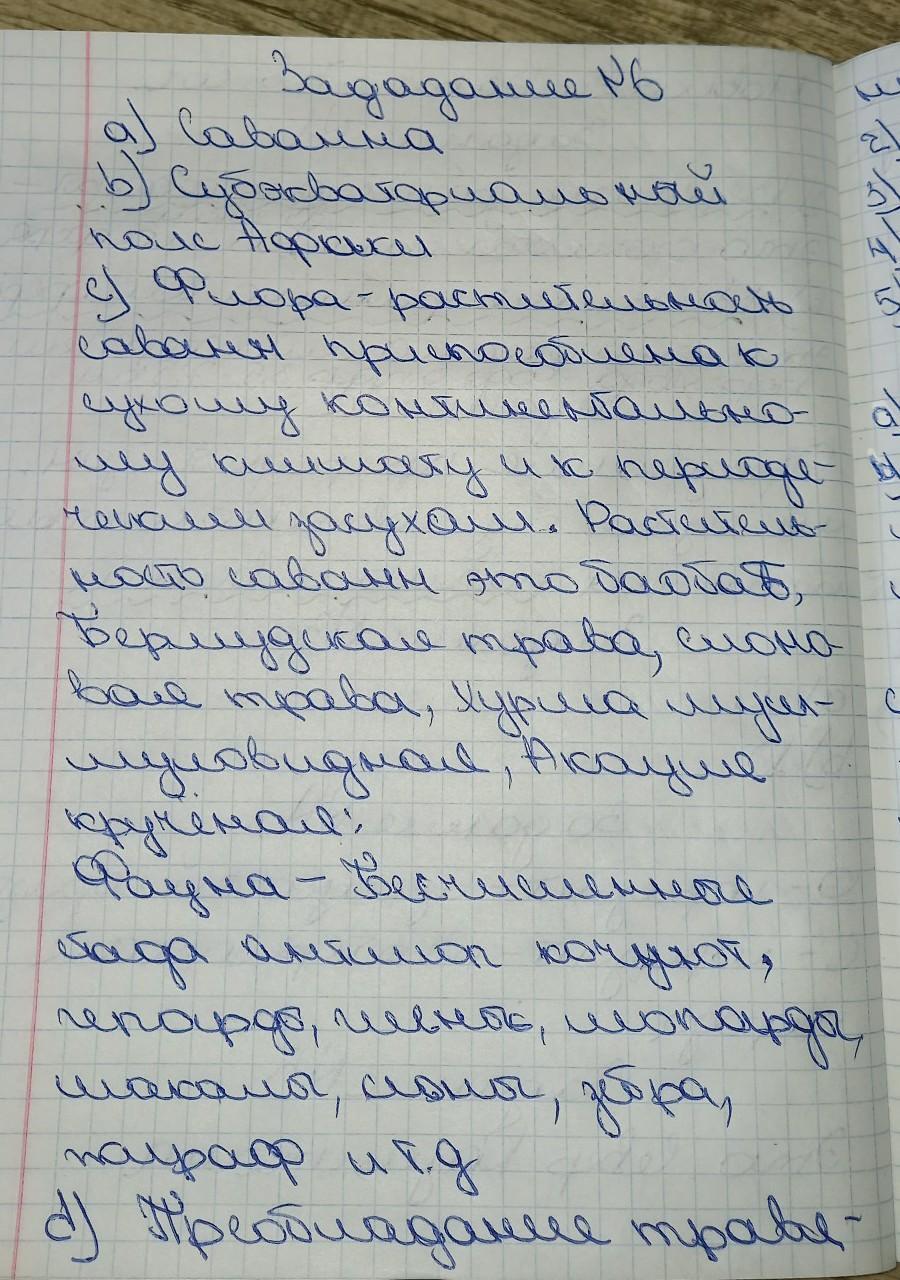 Зададание №6
a) Саванна
b) Субэкваториальный
пояс Африки
c) Флора - растительность
саванн приспособлена к
сухому континентально-
му климату и к периоде-
ческим засухам. Раститель-
ность саванн это баобаб,
Бермудская трава, слоно-
вая трава, Хурма муш-
муловидная, Акация
кручёная.
Фауна - Бесчисленные
стада антилоп кочуют,
гепарды, гиены, леопарды,
шакалы, слоны, зебра,
жираф и т.д
d) Преобладание травя-
2)
3)
4)
5)
a)